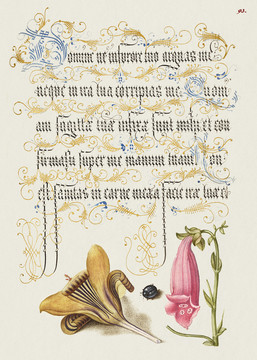 Domine ne in furore tuo arguas me
neque in ira tua corripias me. Quoni
am sagittæ tuæ infixæ sunt mihi et con
firmasti super me manum tuam. Non
est sanitas in carne mea a facie iræ tuæ et